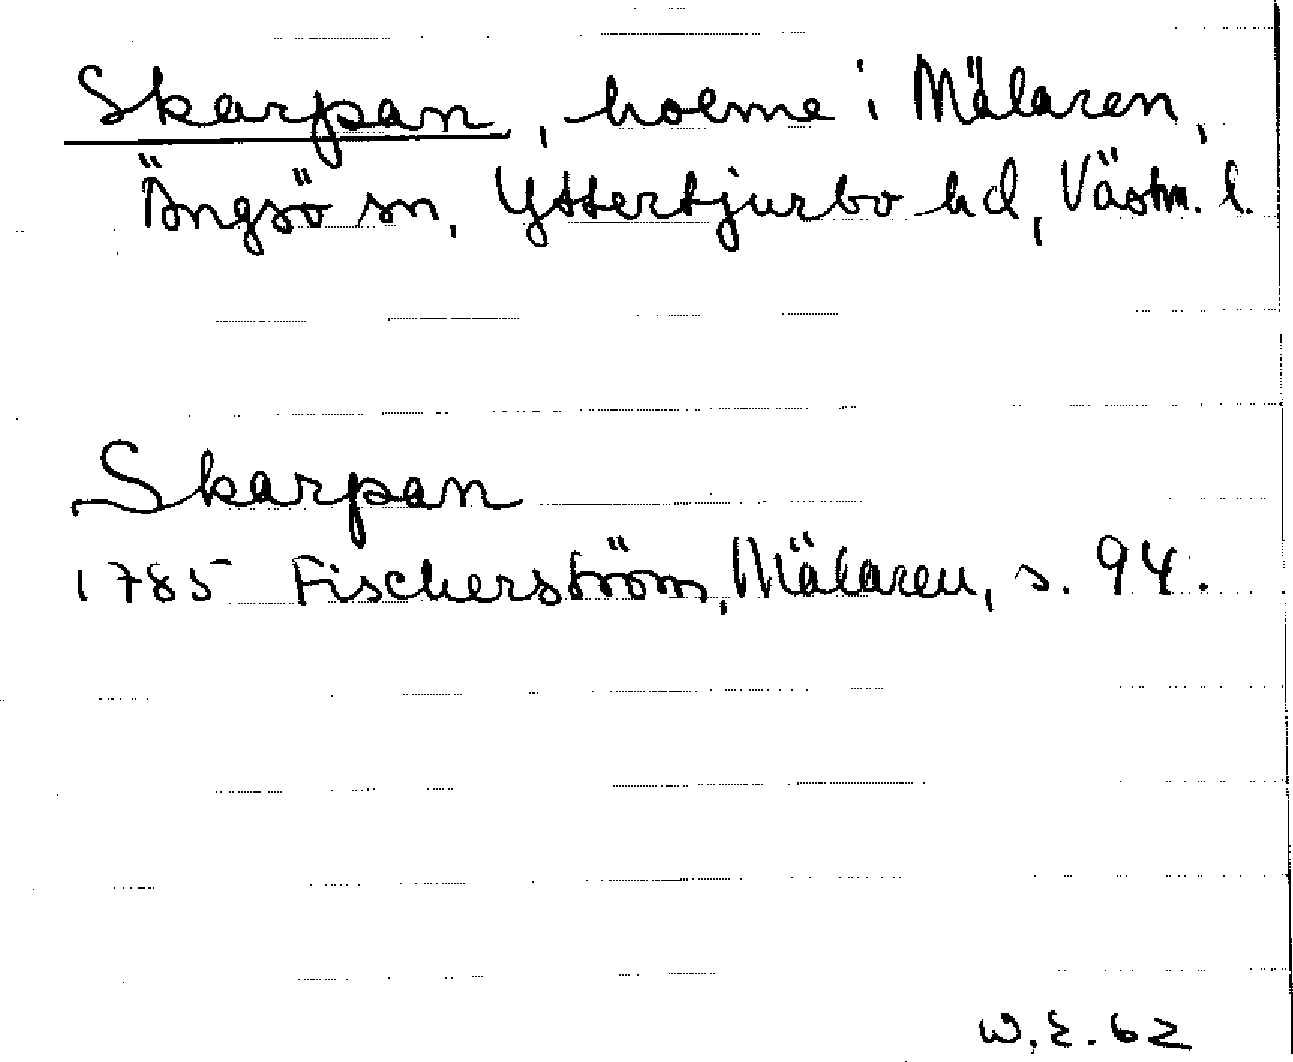 Skarpan, holme i Mälaren,
Ängsö sn, Yttertjurbo hd, Västm. l.
Skarpan
1785 Fischerström, Mälaren, s. 94.
W.E. 62